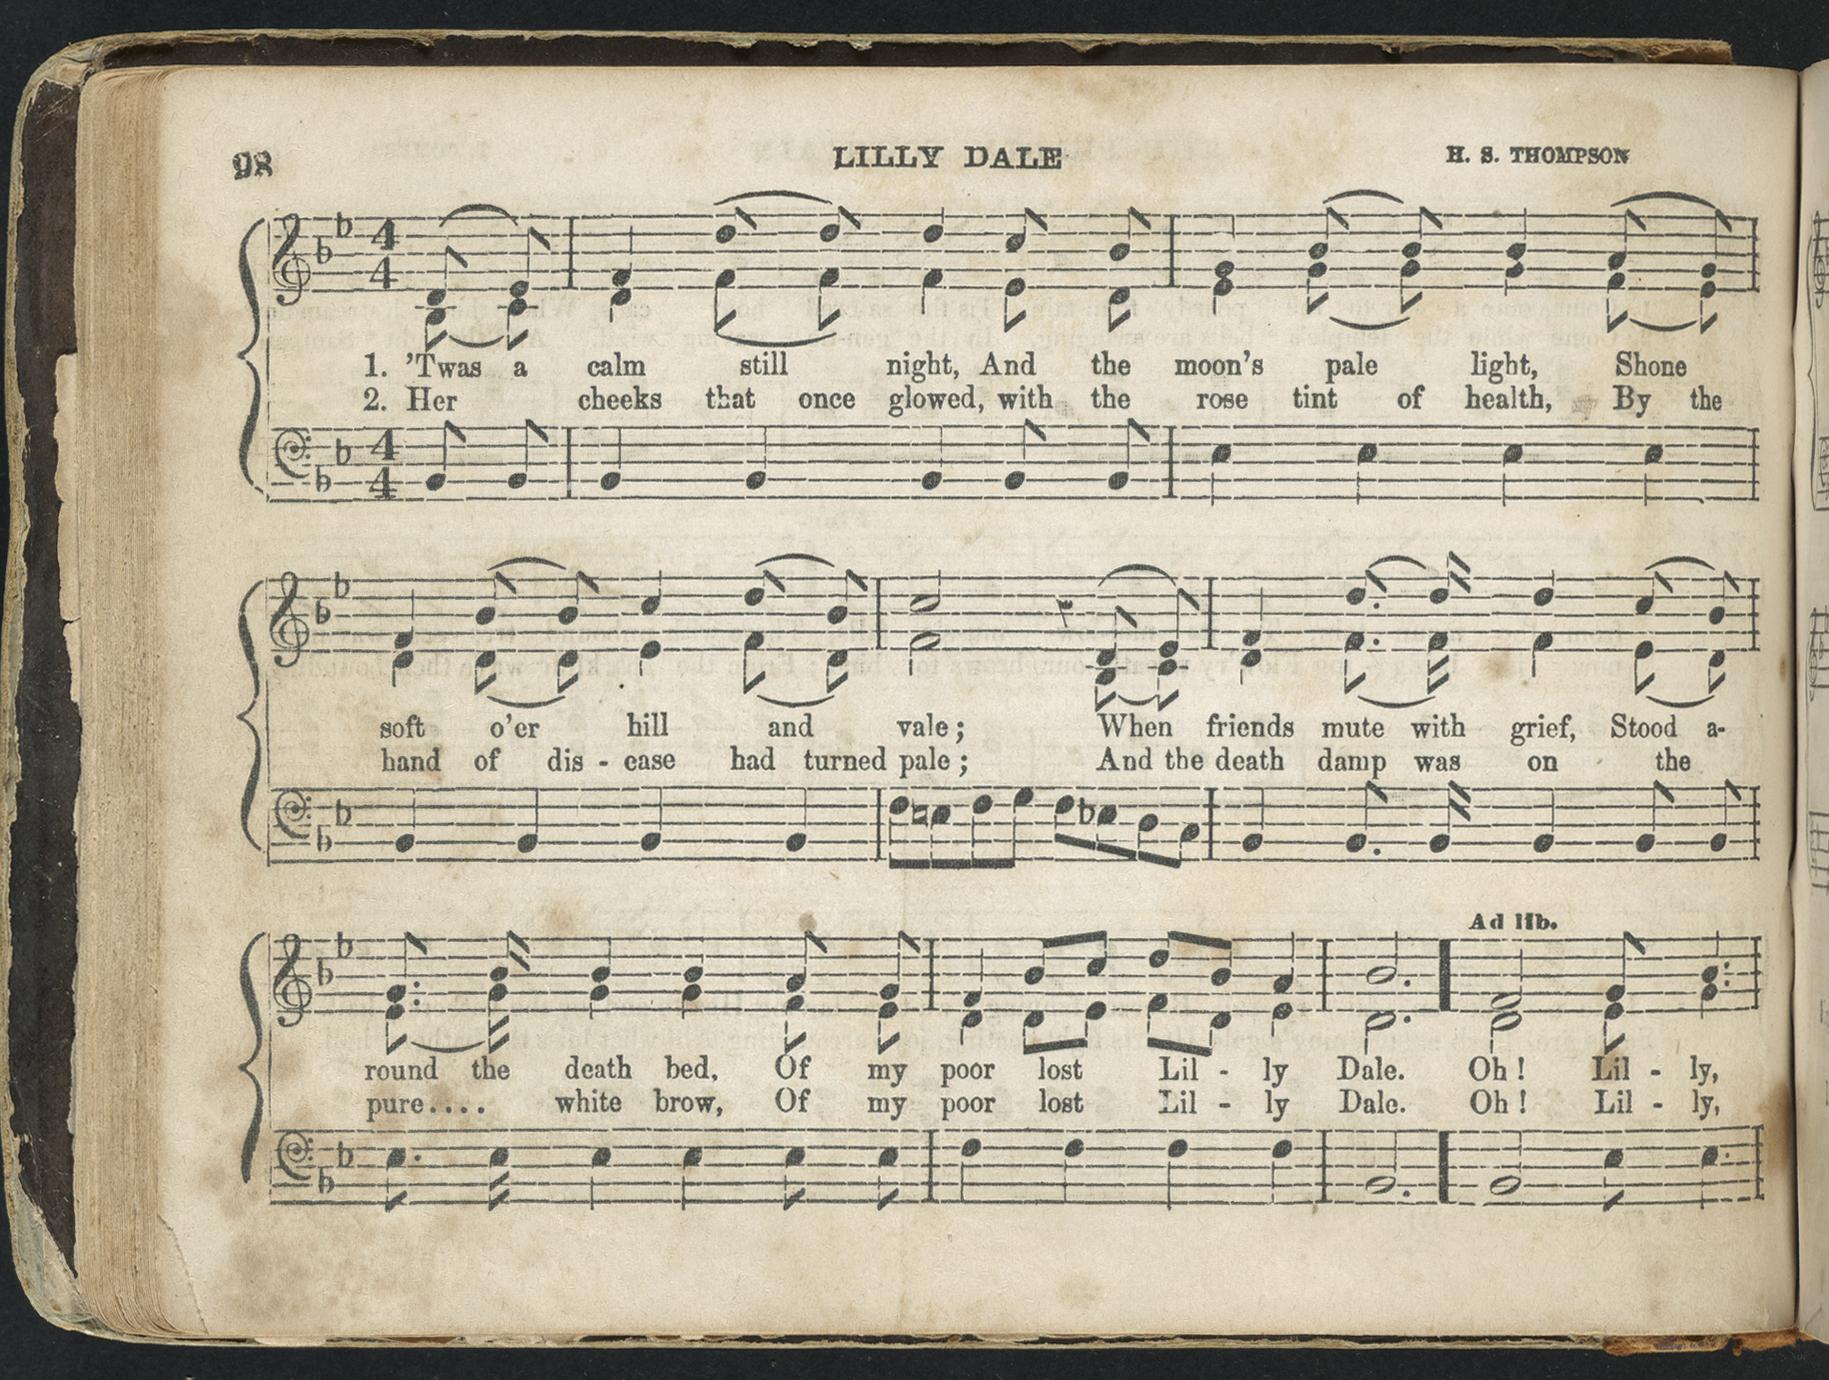 98
LILLY DALE
H. S. THOMPSON
1. 'Twas a calm still night, And the moon's pale light, Shone
2. Her cheeks that once glowed, with the rose tint of health, By the
soft o'er hill and vale; When friends mute with grief, Stood a-
hand of dis - ease had turned pale; And the death damp was on the
Ad lib.
round the death bed, Of my poor lost Lil - ly Dale. Oh! Lil - ly,
pure.... white brow, Of my poor lost Lil - ly Dale. Oh! Lil - ly,